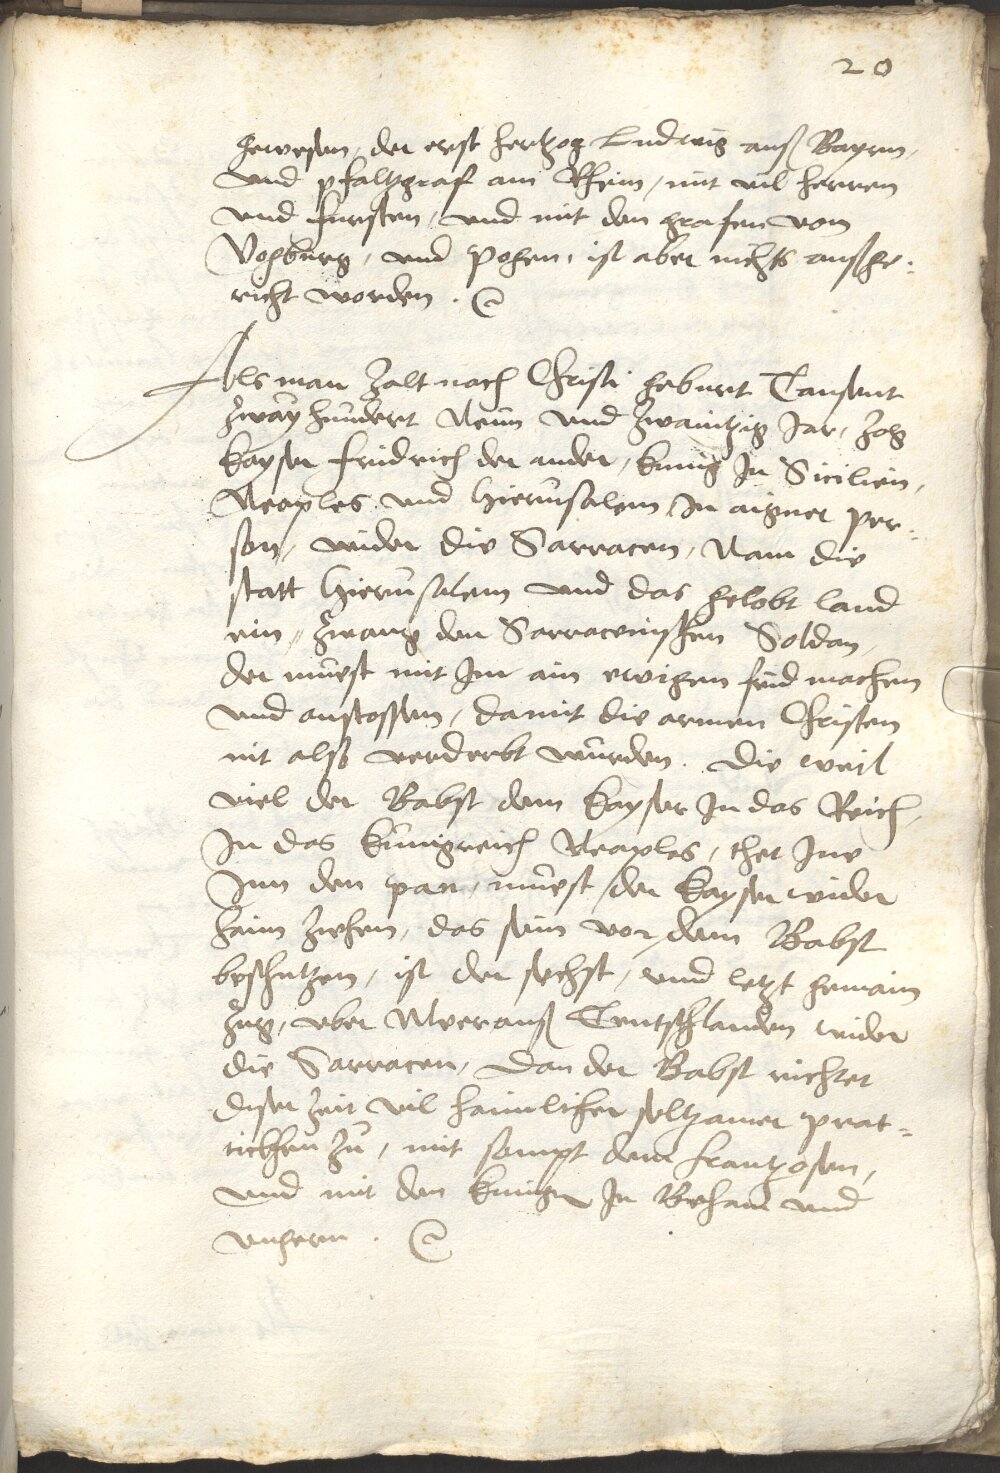 20
gewesen, der erst hertzog Ludwig auß Bayrn,
und pfaltzgraf am Rhein, mit vil herren
und fursten, und mit den grafen von
Vohburg, und Pogen, ist aber nichts außge:
richt worden.
Als man zalt nach Christi geburt Tausent
zway hundert Neun und zwaintzig Jar, zog
kayser fridrich der ander, kunig In Sicilien,
Neaples und Hierusalem, In aigner per:
son, wider die Sarracen, Nam die
statt Hierusalem und das gelobt land
ein, zwang den Sarracenischen Soldan,
der muest mit Im ain ewigen frid machen
und anstossen, damit die armen Christen
nit alß verderbt wurden. Die weil
viel der Babst dem kayser In das Reich,
In das kunigreich Neaples, thet Ine
Inn den pan, muest der kayser wider
haim ziehen, das sein vor dem Babst
beschutzen, ist der sechst, und letzt gemain
zug, uber Meer auß Teutschlanden wider
die Sarracen, Dan der Babst richtet
diser zeit vil haimlicher seltzamer prat:
tickhen zu, mit sampt dem frantzosen,
und mit den kunign In Beham und
Ungern.